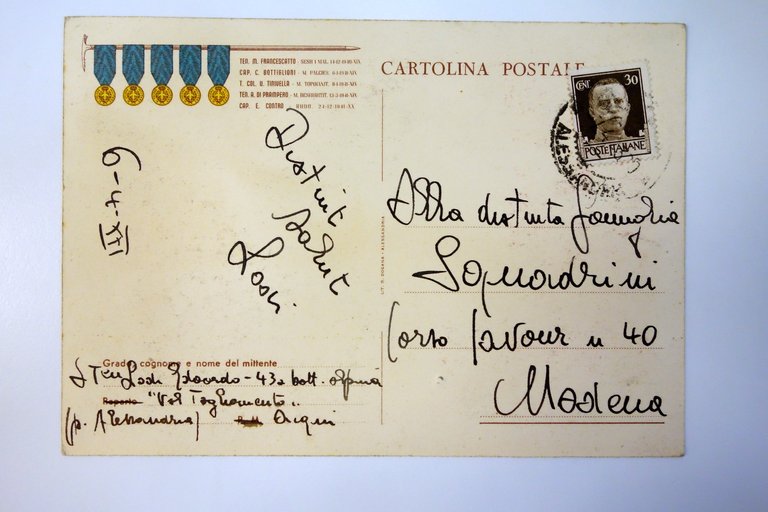 TEN. M. FRANCESCATTO - SESII I MAL. 14-12-1940-XIX
CAP. C. BOTTIGLIONI - M. FALCIES. 6-1-1941-XIX
T. COL. U. TINIVELLA - M. TOPOJANIT. 8-1-1941-XIX
TEN. A. DI PRAMPERO - M. BESHISHTIT. 13-3-1941-XIX
CAP. E. CONTRO - 24-12-1941-XX
CARTOLINA POSTALE
CENT 30
POSTE ITALIANE
ALESSANDRIA
6-4-XXI
Distinti
saluti
Losi
Alla distinta famiglia
Squadrini
Corso Cavour n 40
Modena
LIT. D. DOGANA - ALESSANDRIA
Grado, cognome e nome del mittente
STen Losi Edoardo - 43a batt. alpina
Reparto "Val Tagliamento"
(p. Alessandria) P. M. Acqui